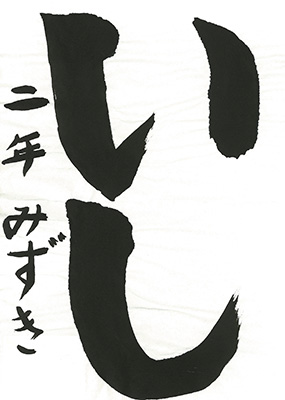 いし
二年 みずき